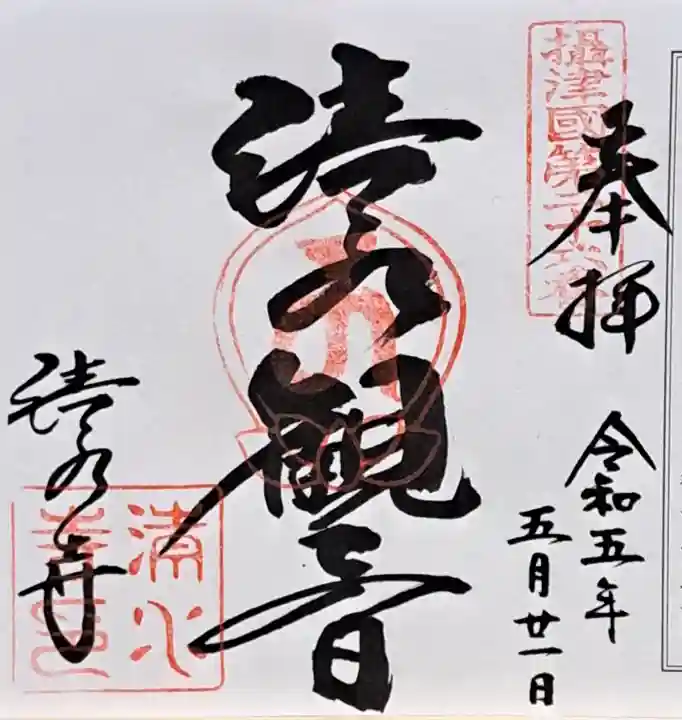 奉拝
攝津國第二十六番
令和五年
五月廿一日
清水観音
清水寺
清水
寺印